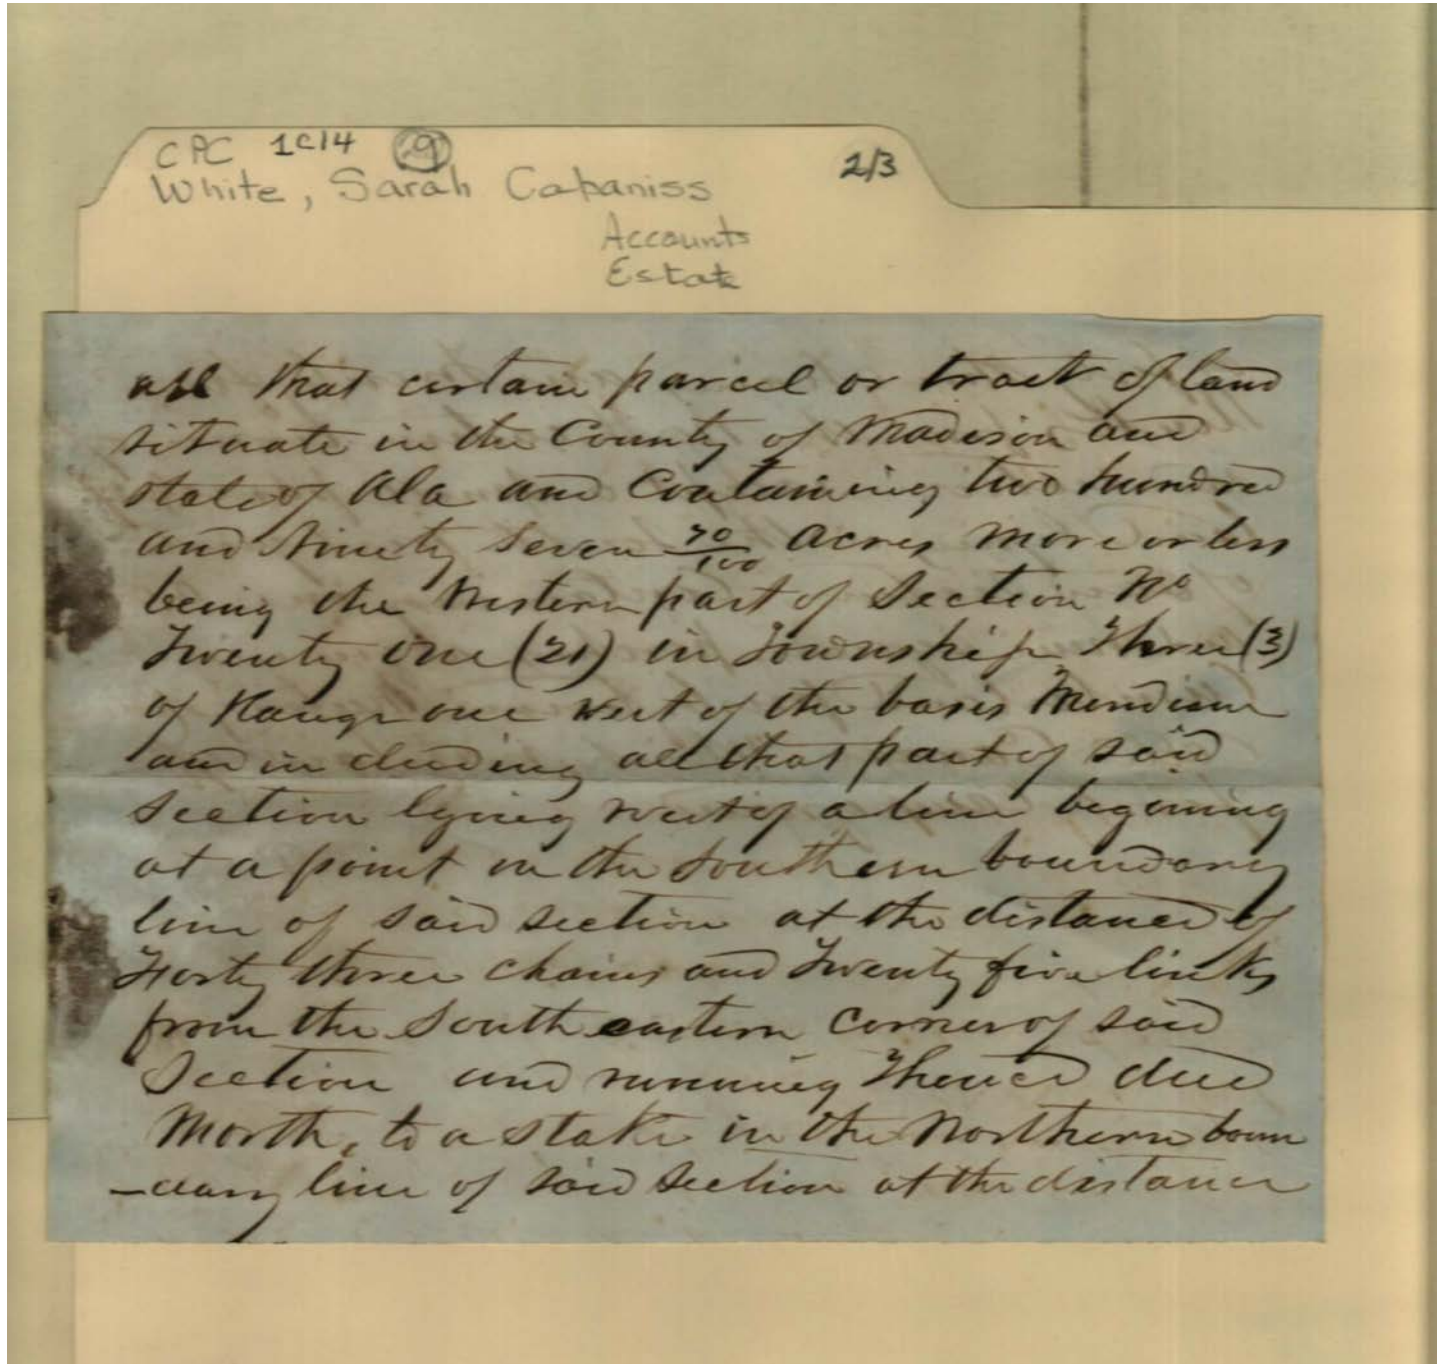 CPC 1C14 (9)
White, Sarah Cabaniss 2/3
Accounts
Estate
all that certain parcel or tract of land
situate in the County of Madison and
state of Ala and Containing two hundred
and Ninety Seven 70/100 Acres more or less
being the Western part of Section No
Twenty One (21) in Township Three (3)
of Range one West of the basis Meridian
and including all that part of said
section lying west of a line begining
at a point in the Southern boundary
line of said section at the distance of
Forty three chains and Twenty five links
from the South eastern Corner of said
Section and running Thence due
North, to a stake in the Northern boun
-dary line of said section at the distance